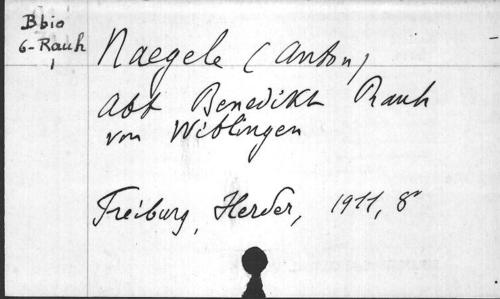 Bbio
6-Rauh
1
Naegele (Anton)
Abt Benedikt Rauh
von Wiblingen
Freiburg, Herder, 1911, 8°